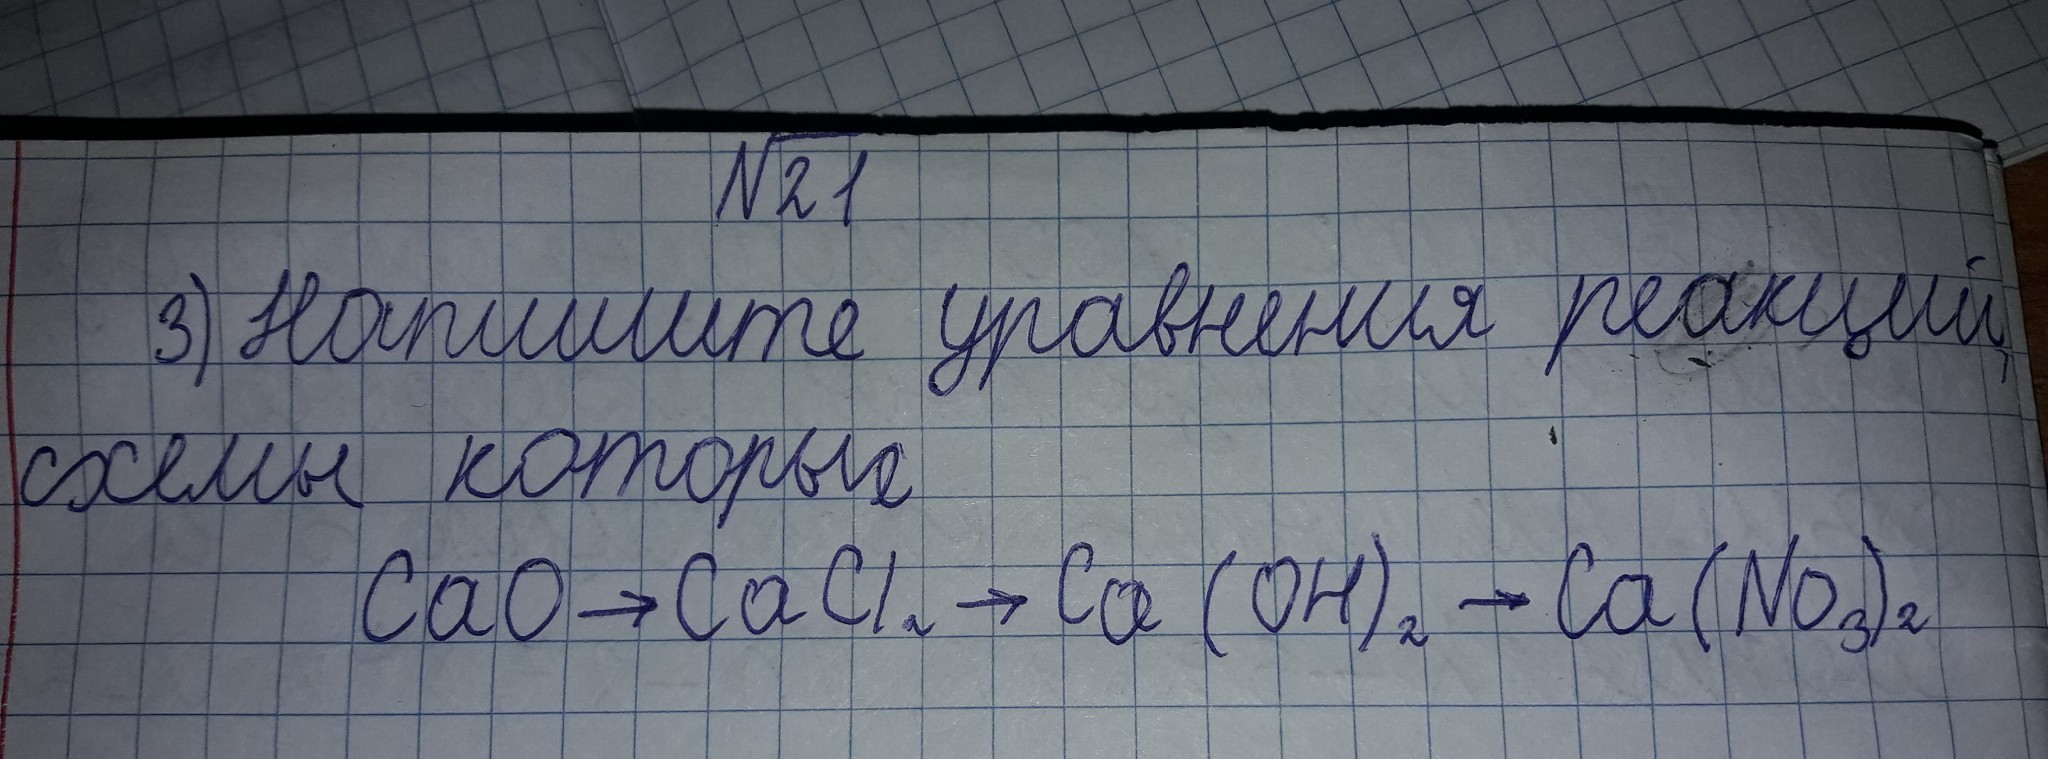 №21
3) Напишите уравнения реакций,
схемы которых
CaO → CaCl₂ → Ca (OH)₂ → Ca(NO₃)₂